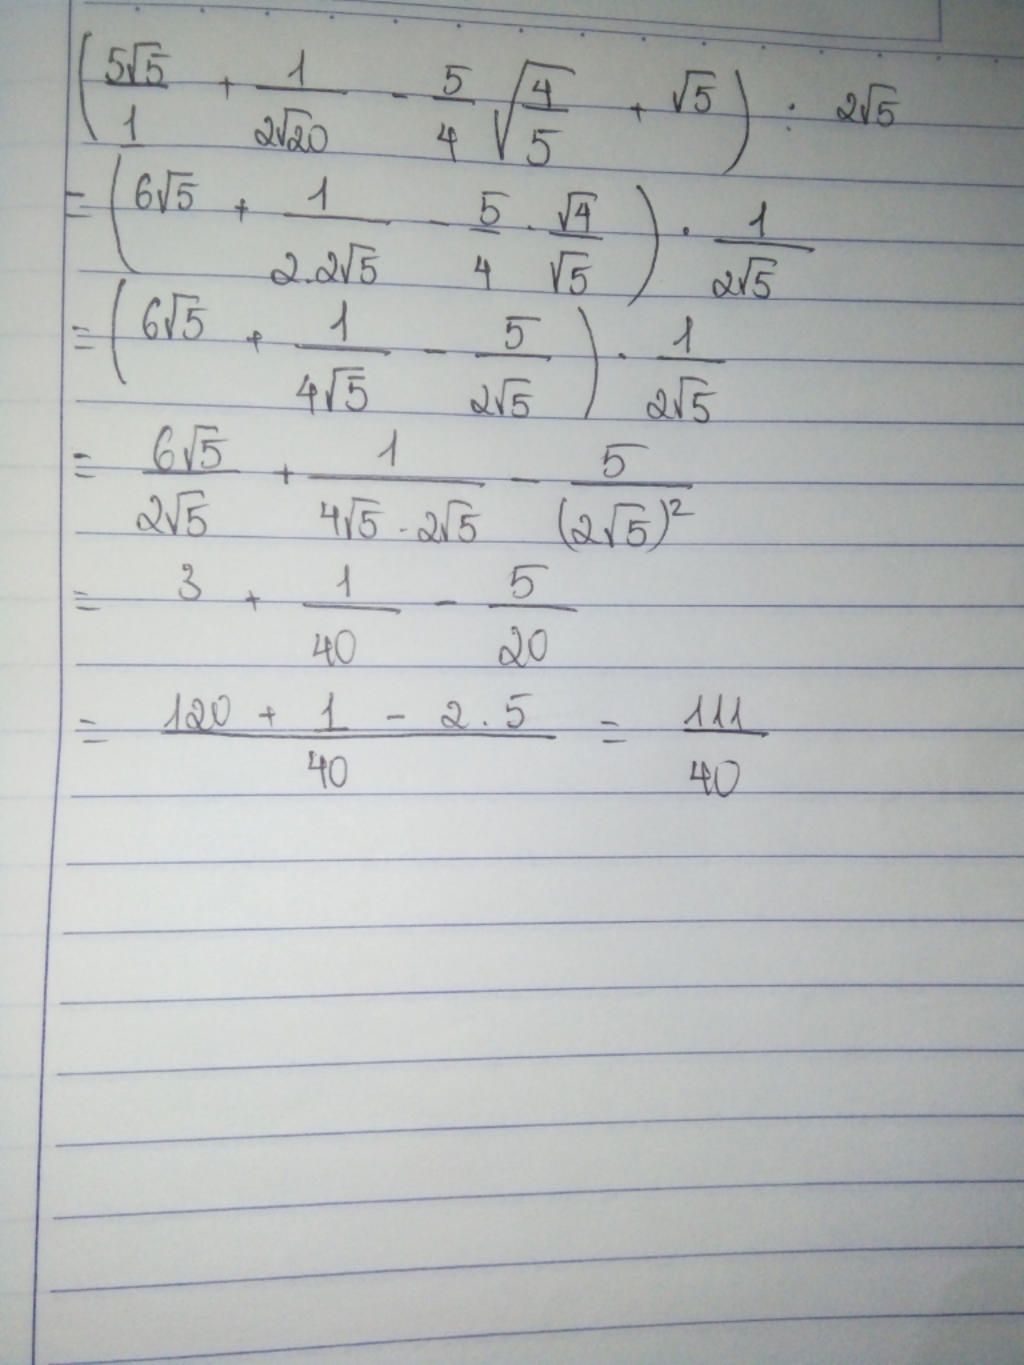 (5√5/1 + 1/2√20 - 5/4 √(4/5) + √5) : 2√5
= (6√5 + 1/2.2√5 - 5/4 . √4/√5) . 1/2√5
= (6√5 + 1/4√5 - 5/2√5) . 1/2√5
= 6√5/2√5 + 1/4√5 . 2√5 - 5/(2√5)²
= 3 + 1/40 - 5/20
= 120 + 1 - 2.5/40 = 111/40